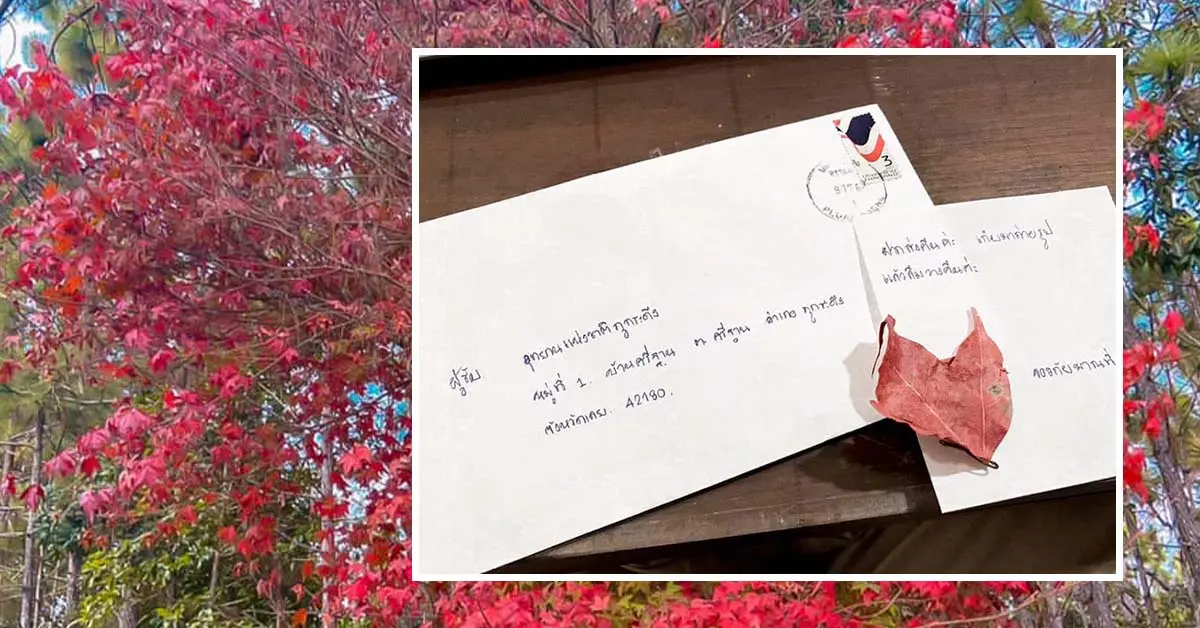 ผู้รับ อุทยานแห่งชาติภูกระดึง
หมู่ที่ 1. บ้านศรีฐาน ต ศรีฐาน อำเภอ ภูกระดึง
จังหวัดเลย. 42180.
3
ฝากส่งคืนค่ะ เก็บมาถ่ายรูป
แล้วลืมวางคืนค่ะ
ขออภัยมาณที่